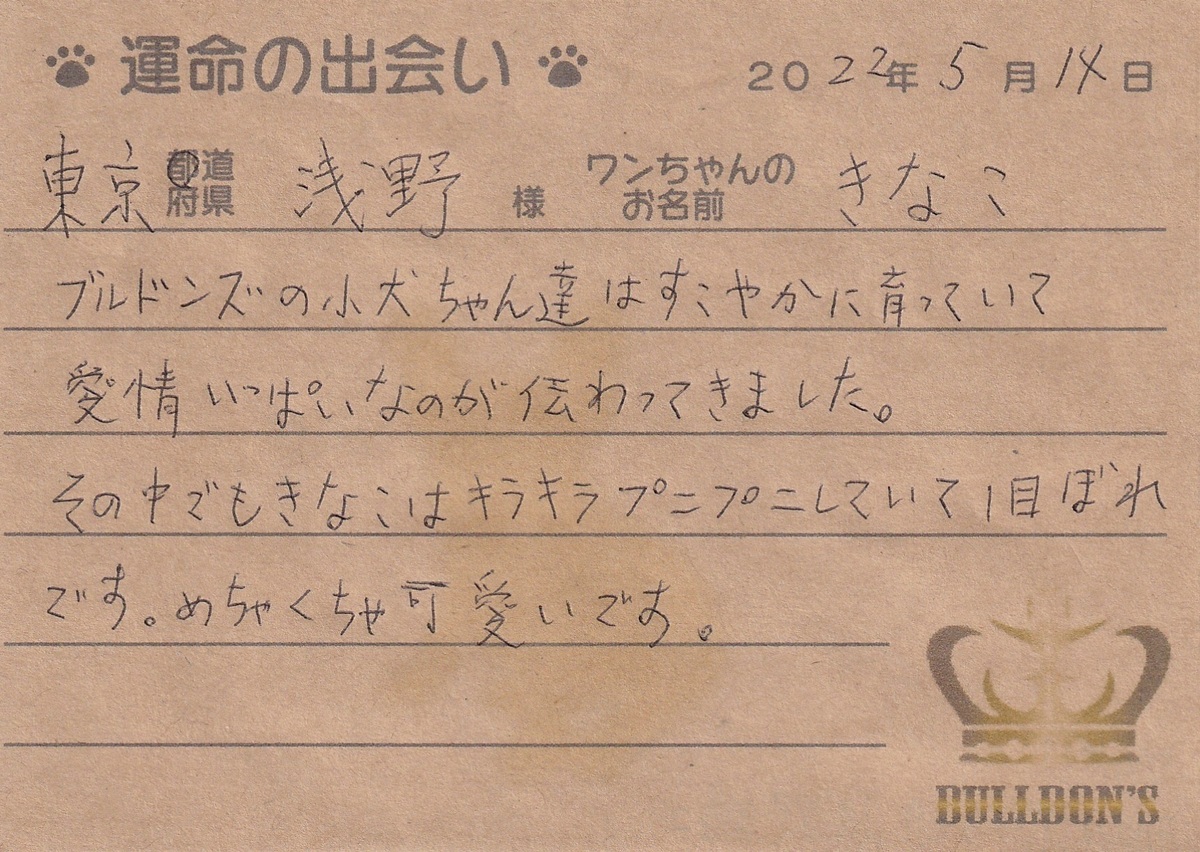 運命の出会い 2022年5月14日
東京都道府県 浅野様 ワンちゃんのお名前 きなこ
ブルドンズの小犬ちゃん達はすこやかに育っていて
愛情いっぱいなのが伝わってきました。
その中でもきなこはキラキラプニプニしていて1目ぼれ
です。めちゃくちゃ可愛いです。
BULLDON'S